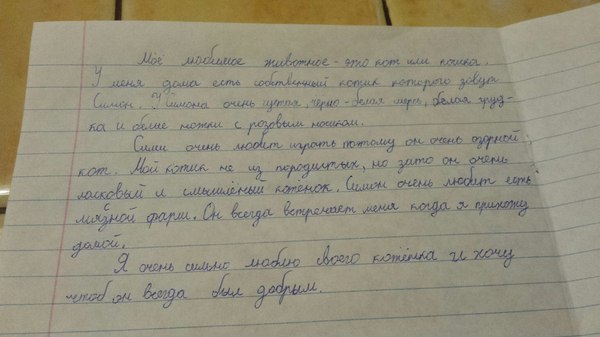 Моё любимое животное - это кот или кошка.
У меня дома есть собственный котик которого зовут
Симон. У Симона очень густая, черно-белая шерсть, белая груд-
ка и белые ножки с розовым носиком.
Сими очень любит играть потому он очень озорной
кот. Мой котик не из породистых, но зато он очень
ласковый и смышлёный котёнок. Симон очень любит есть
мясной фарш. Он всегда встречает меня когда я прихожу
домой.
Я очень сильно люблю своего котёнка и хочу
чтоб он всегда был добрым.